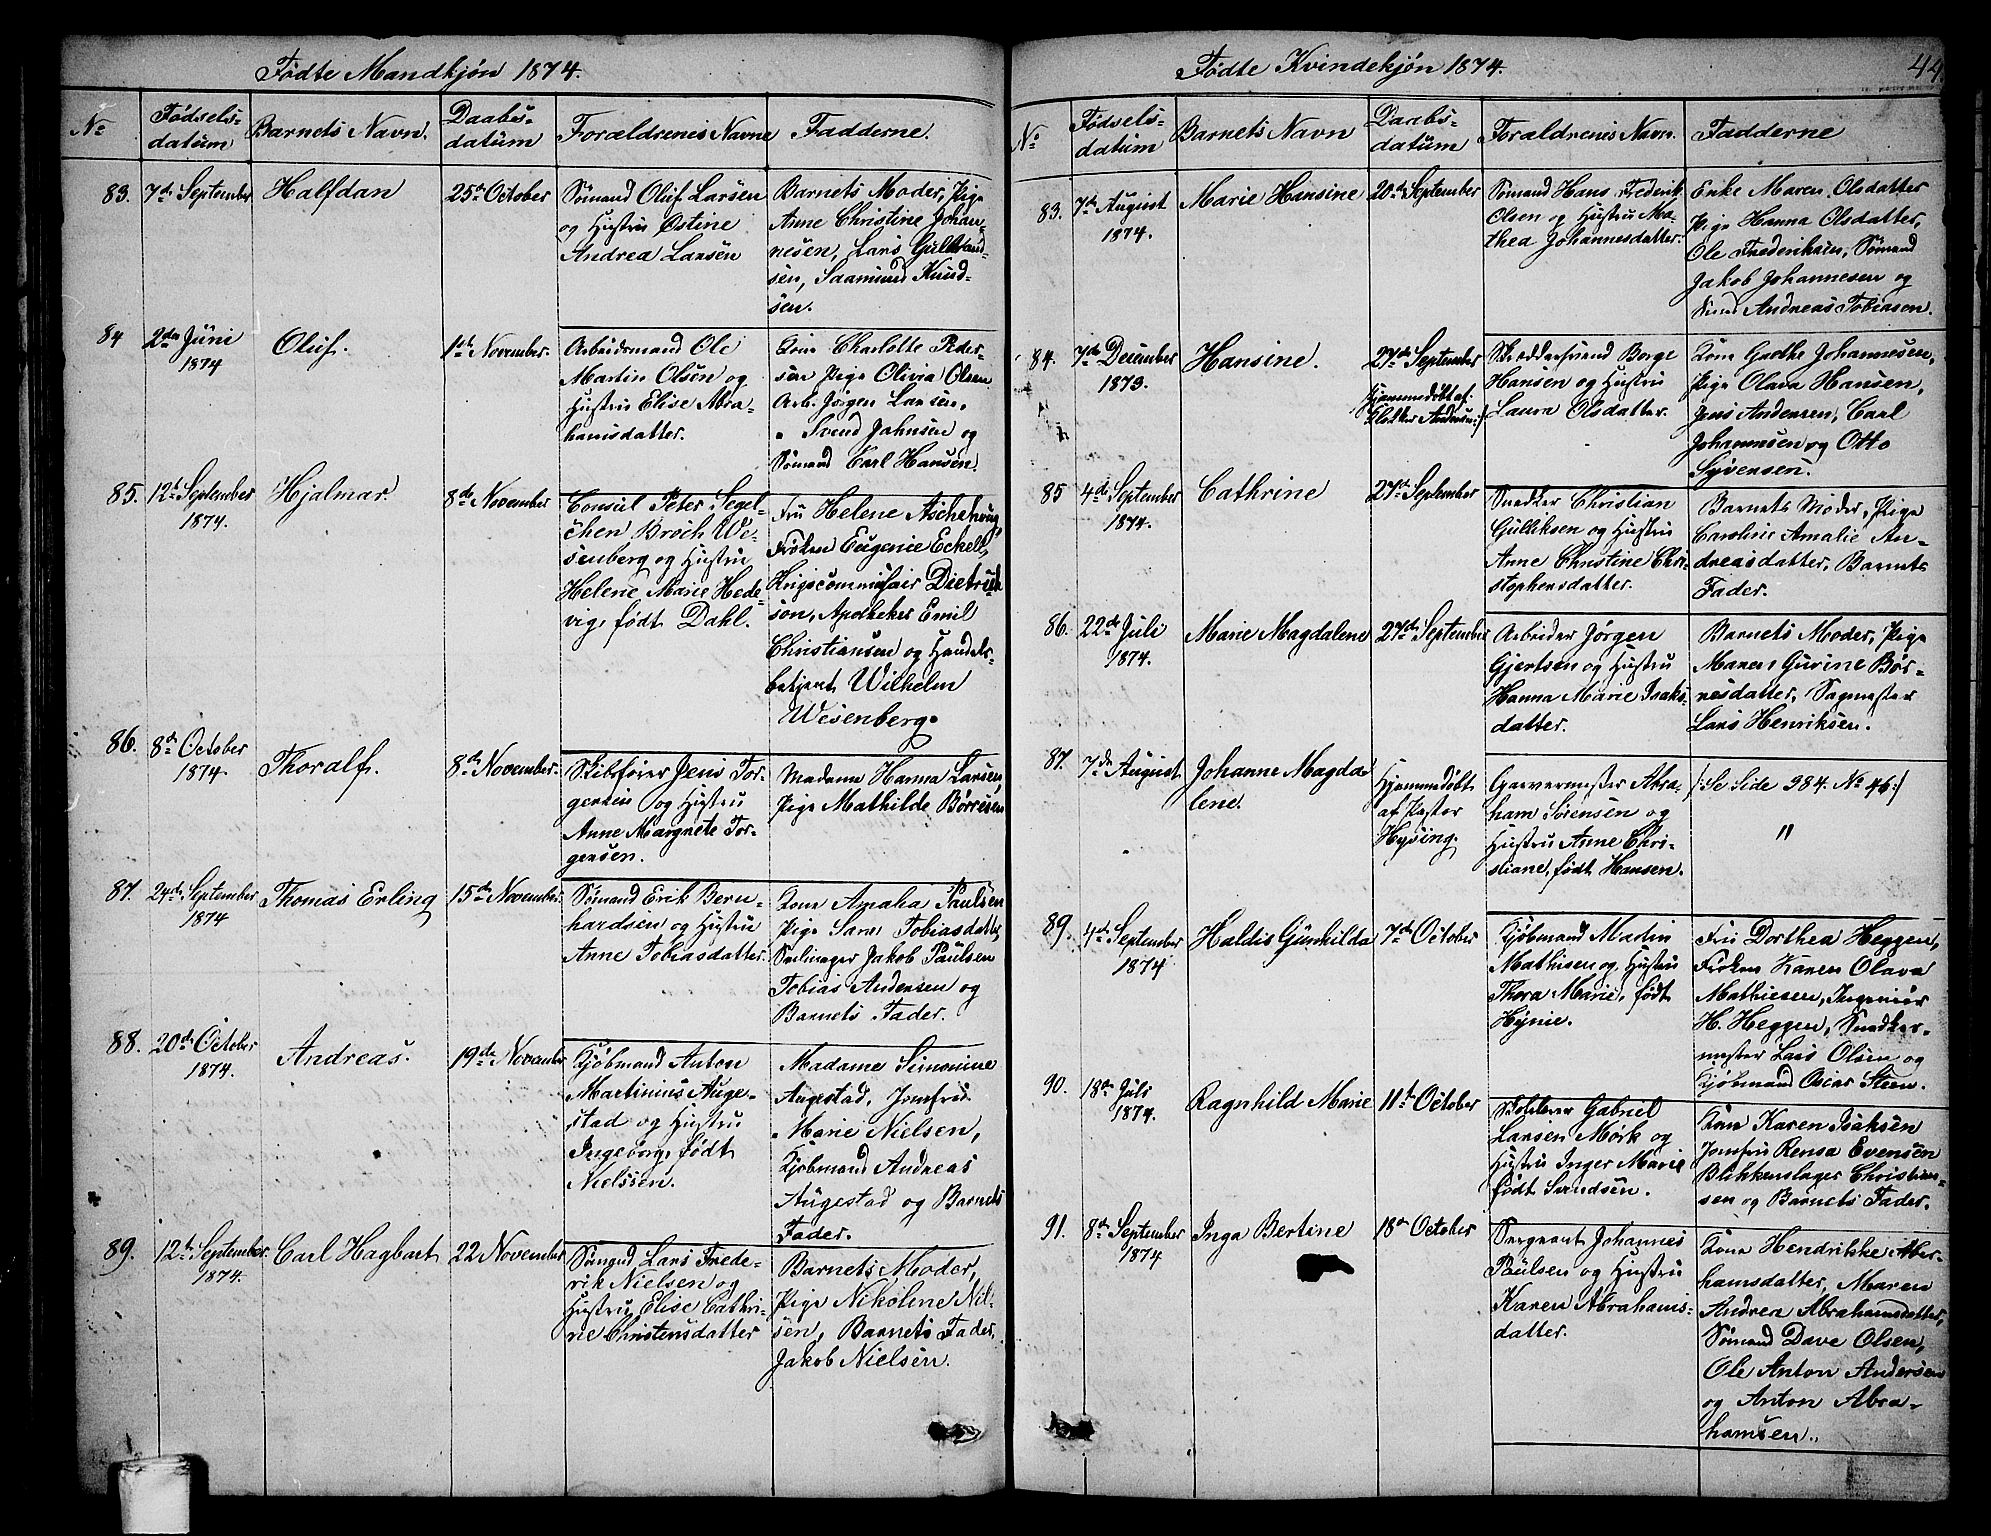 Fødte Mandkjøn 1874.
No
Fødsels-
datum
Barnets Navn.
Daabs-
datum
Forældrenes Navne
Fadderne.
83.
7de September
Halfdan
25de October
Sømand Oluf Larsen
og Hustru Østine
Andrea Larsen
Barnets Moder, Pige
Anne Christine Johan-
nesen, Lars Gulbrand-
sen, Saamund Knud-
sen.
84
2den Juni
1874
Oluf.
1ste November.
Arbeidsmand Ole
Martin Olsen og
Hustru Elise Abra-
hamsdatter.
Kone Charlotte Peder-
sen Pige Olivia Olsen
Arb. Jörgen Larsen,
" Svend Jahnsen og
Sømand Carl Hansen.
85.
12te September
1874.
Hjalmar.
8de November
Consul Peter Segel-
chen Broch We-
senberg og Hustru
Helene Marie Hede-
vig, født Dahl.
Fru Helene Aschehoug,
Frøken Eugenie Eckell,
Krigscommissair Dietrich-
son, Apotheker Emil
Christiansen og Handels-
betjent Wilhelm
Wesenberg.
86.
8de October
1874.
Thoralf.
8de November.
Skibsfører Jens Tor-
gersen og Hustru
Anne Margrete Tor-
gersen.
Madame Hanna Larsen,
Pige Mathilde Børresen
87.
24de September
1874
Thomas Erling
15de November.
Sømand Erik Bern-
hardsen og Hustru
Anne Tobiasdatter.
Kone Amalia Paulsen
Pige Sara Tobiasdatter,
Seilmager Jakob Paulsen
Tobias Andersen og
Barnets Fader.
88.
20de October
1874.
Andreas.
19de November
Kjøbmand Anton
Martinius Auge-
stad og Hustru
Ingeborg, født
Nielssen.
Madame Simonine
Augestad, Jomfru
Marie Nielsen,
Kjøbmand Andreas
Augestad og Barnets
Fader.
89.
12te September
1874.
Carl Hagbart
22 November
Sømand Lars Frede-
rik Nielsen og
Hustru Elise Cathri-
ne Christensdatter
Barnets Moder,
Pige Nikoline Niel-
sen, Barnets Fader,
Jakob Nielsen.
Fødte Kvindekjøn 1874.
44.
No
Fødsels-
datum
Barnets Navn
Daabs-
datum
Forældrenes Navn.
Fadderne
83.
7de August
1874.
Marie Hansine
20de September
Sømand Hans Frederik
Olsen og Hustru Ma-
thea Johannesdatter.
Enke Maren Olsdatter
Pige Hanna Olsdatter,
Ole Frederiksen, Sømand
Jakob Johannesen og
Andreas Tobiasen.
84.
7de December
1873.
Hansine.
27de September
Hjemmedøbt af
Klokker Andersen:/
Skræddersvend Borge
Hansen og Hustru
Laura Olsdatter.
Kone Grethe Johannesen,
Pige Olava Hansen,
Jens Andersen, Carl
Johannesen og Otto
Syvensen.
85
4de September
1874.
Cathrine
27de September
Snedker Christian
Gulliksen og Hustru
Anne Christine Chri-
stophersdatter.
Barnets Moder, Pige
Caroline Amalie An-
dreasdatter, Barnets
Fader.
86.
22de Juli
1874.
Marie Magdalene
27de September
Arbeider Jörgen
Gjertsen og Hustru
Hanna Marie Isaks-
datter.
Barnets Moder, Pige
Maren Gurine Bør-
resdatter, Sagmester
Lars Henriksen.
87.
7de August
Johanne Magda-
lene.
Hjemmedøbt
af Pastor
Hysing.
Garvermester Abra-
ham Sørensen og
Hustru Anne Chri-
stiane, født Hansen.
/:Se Side 384. No 46:/
"
89.
4de September
1874.
Haldis Gunhilda
7de October
Kjøbmand Martin
Mathisen og Hustru
Thora Marie, født
Hynie.
Fru Dorthea Heggen,
Frøken Karen Olava
Mathiesen, Ingeniør
H. Heggen, Snedker-
mester Lars Olsen og
Kjøbmand Oscar Steen.
90.
18de Juli
1874.
Ragnhild Marie
11te October
Skolelærer Gabriel
Larsen Mørk og
Hustru Inger Marie
født Svendsen.
Kone Karen Isaksen
Jomfru Rensa Evensen
Blikkenslager Christian-
sen og Barnets Fader.
91.
8de September
1874
Inga Bertine
18de October
Sergeant Johannes
Paulsen og Hustru
Karen Abrahams-
datter.
Kone Hendrikke Abra-
hamsdatter, Maren
Andrea Abrahamsdatter,
Sømand Dave Olsen,
Ole Anton Andersen
og Anton Abra-
hamsen.